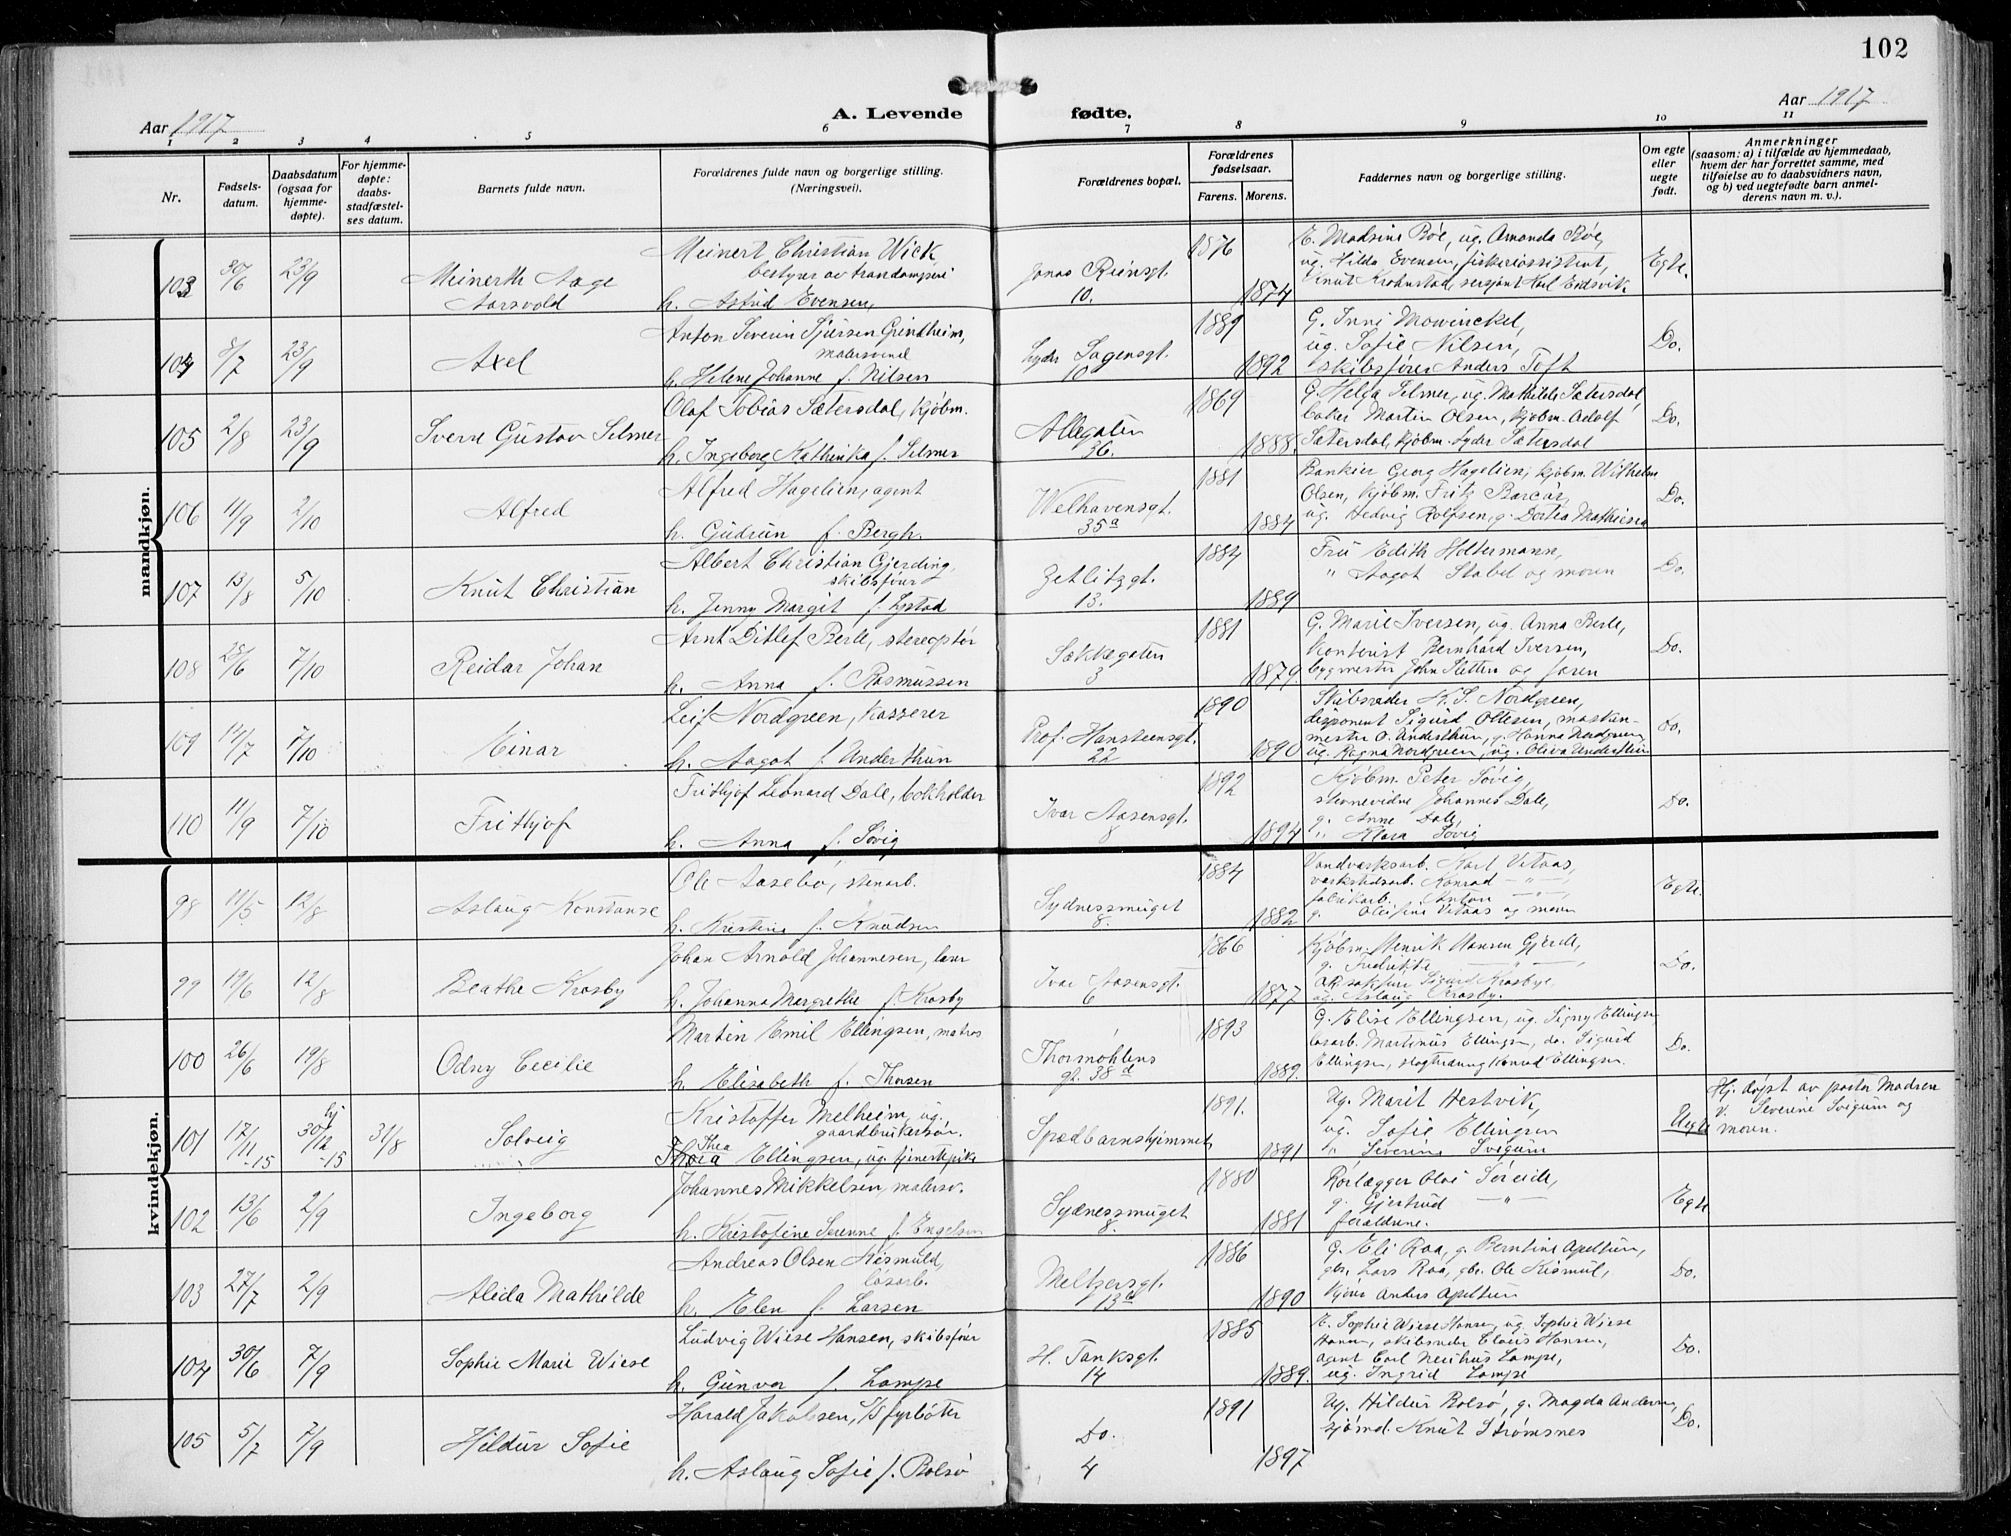 102
Aar 1917
A. Levende fødte.
Aar 1917
1 2 3 4 5 6 7 8 9 10 11
Nr.
Fødsels-datum.
Daabsdatum (ogsaa for hjemme-døpte).
For hjemme-døpte: daabs-stadfæstel-ses datum.
Barnets fulde navn.
Forældrenes fulde navn og borgerlige stilling. (Næringsvei).
Forældrenes bopæl.
Forældrenes fødselsaar.
Farens. Morens.
Faddernes navn og borgerlige stilling.
Om egte eller uegte født.
Anmerkninger
(saasom: a) i tilfælde av hjemmedaab,
hvem der har forrettet samme, med
tilføielse av to daabsvidners navn,
og b) ved uegtefødte barn anmel-
derens navn m. v.).
mandkjøn.
103 30/6 23/9 Meinerth Aage Aarsvold
Meinert Christian Wick
bestyrer av trandamperi
h. Astrid Evensen,
Jonas Reinsgt. 10.
1876 1874
E. Madsine Bøe, ug. Amanda Bøe,
ug. Hilda Evensen, fiskeriassistent,
Knut Krohnstad, sersjant Karl Eidsvik
Egte.
104 8/7 23/9 Axel
Anton Severin Sjursen Grindheim,
malersvend
h. Helene Johanne f. Nilsen
Lyder Sagensgt. 10
1889 1892
G. Inni Mowinckel,
ug. Sofie Nilsen,
skibsfører Anders Toft
Do.
105 2/8 23/9 Sverre Gustav Selmer
Olaf Tobias Sætersdal, kjøbm.
h. Ingeborg Kathinka f. Selmer
Allegaten 36.
1869 1888.
G. Helga Selmer, ug. Mathilde Sætersdal,
baker Martin Olsen, kjøbm. Adolf
Sætersdal, kjøbm. Lyder Sætersdal
Do.
106 11/9 2/10 Alfred
Alfred Hagelien, agent
h. Gudrun f. Bergh.
Welhavensgt. 35a
1881 1884
Bankier Georg Hagelien, kjøbm. Wilhelm
Olsen, kjøbm. Fritz
ug. Hedvig Rolfsen, g. Dortea Mathiesen
Do.
107 13/8 5/10 Knut Christian
Albert Christian Gjerding,
skibsfører
h. Jenny Margit f. Lystad
Zetlitzgt. 13.
1884 1889
Fru Edith Holtermann,
" Aagot Stabel og moren
Do.
108 25/6 7/10 Reidar Johan
Arnt Ditlef Berle, stereoptør
h. Anna f. Rasmussen
Sækkegaten 3
1881 1879.
G. Marie Iversen, ug. Anna Berle,
kontorist Bernhard Iversen,
bygmester John Sletten og faren
Do.
109 14/7 7/10 Einar
Leif Nordgreen, kasserer
h. Aagot f. Underthun
Prof. Hansteensgt. 22
1890 1890
Skibsreder K. S. Nordgreen,
disponent Sigurd Ottesen, maskin-
mester O. Underthun, g. Hanna Nordgreen,
ug. Ragna Nordgreen, ug. Oliva Underthun
Do.
110 11/9 7/10 Frithjof
Frithjof Leonard Dale, bokholder
h. Anna f. Søvig
Ivar Aasensgt. 8
1892 1894
Kjøbm. Peter Søvig,
stevnevidne Johannes Dale,
g. Anne Dale,
" Klara Søvig
Do.
kvindekjøn.
98 11/5 12/8 Aslaug Konstanse
Ole Aasebø, stenarb.
h. Kristine f. Knudsen
Sydnessmuget 8.
1884 1882
Vandverksarb. Karl Vetaas,
verkstedsarb. Konrad — " —
fabrikarb. Anton — " —
g. Olefine Vetaas og moren
Egte.
99 19/6 12/8 Beathe Krosby
Johan Arnold Johannesen, lærer
h. Johanna Margrethe f. Krosby
Ivar Aasensgt. 6
1866 1877
Kjøbm. Henrik Hansen Gjerde,
g. Fredrikke — " —
Sigurd Krosbye,
ug. Aslaug Krosby.
Do.
100 26/6 19/8 Odny Cecilie
Martin Emil Ellingsen, matros
h. Elisabeth f. Thorsen
Thormøhlens gt. 38d
1893 1889.
G. Elise Ellingsen, ug. Signy Ellingsen,
løsarb. Martinus Ellingsen, do. Sigurd
Ellingsen, Konrad Ellingsen
Do.
101 17/11 -15 hj. 30/12 -15 31/8 Solveig
Kristoffer Melheim, ug.
gaardbrukersøn.
Thea
Thora Ellingsen, ug. tjenestepike
Spædbarnshjemmet
1891. 1891
Ug. Marit Hestvik,
ug. Sofie Ellingsen
" Severine Svigum
Uegte
Hj. døpt av pastor Madsen
v. Severine Svigum og
moren.
102 13/6 2/9 Ingeborg
Johannes Mikkelsen, malersv.
h. Kristofine Serenne f. Engelsen
Sydnessmuget 8.
1880 1881
Rørlægger Olai Søreide,
g. Gjertrud — " —
forældrene.
Egte
103 27/7 2/9 Alida Mathilde
Andreas Olsen Kismuld,
løsarb.
h. Elen f. Larsen
Meltzersgt. 13d
1886 1890
G. Eli Raa, g. Berntine Apeltun,
gbr. Lars Raa, gbr. Ole Kismul,
Anders Apeltun
Do.
104 30/6 7/9 Sophie Marie Wiese
Ludvig Wiese Hansen, skibsfører
h. Gunvor f. Lampe
H. Tanksgt. 14
1885 1889.
E. Sophie Wiese Hansen, ug. Sophie Wiese
Hansen, skibsreder Claus Hansen,
agent Carl Neuhus Lampe,
ug. Ingrid Lampe
Do.
105 5/7 7/9 Hildur Sofie
Harald Jakobsen, D/S fyrbøter
h. Aslaug Sofie f. Bolsø
Do. 4
1891 1897
Ug. Hildur Bolsø, g. Magda Andersen,
sjømd. Knut Strømsnes
Do.